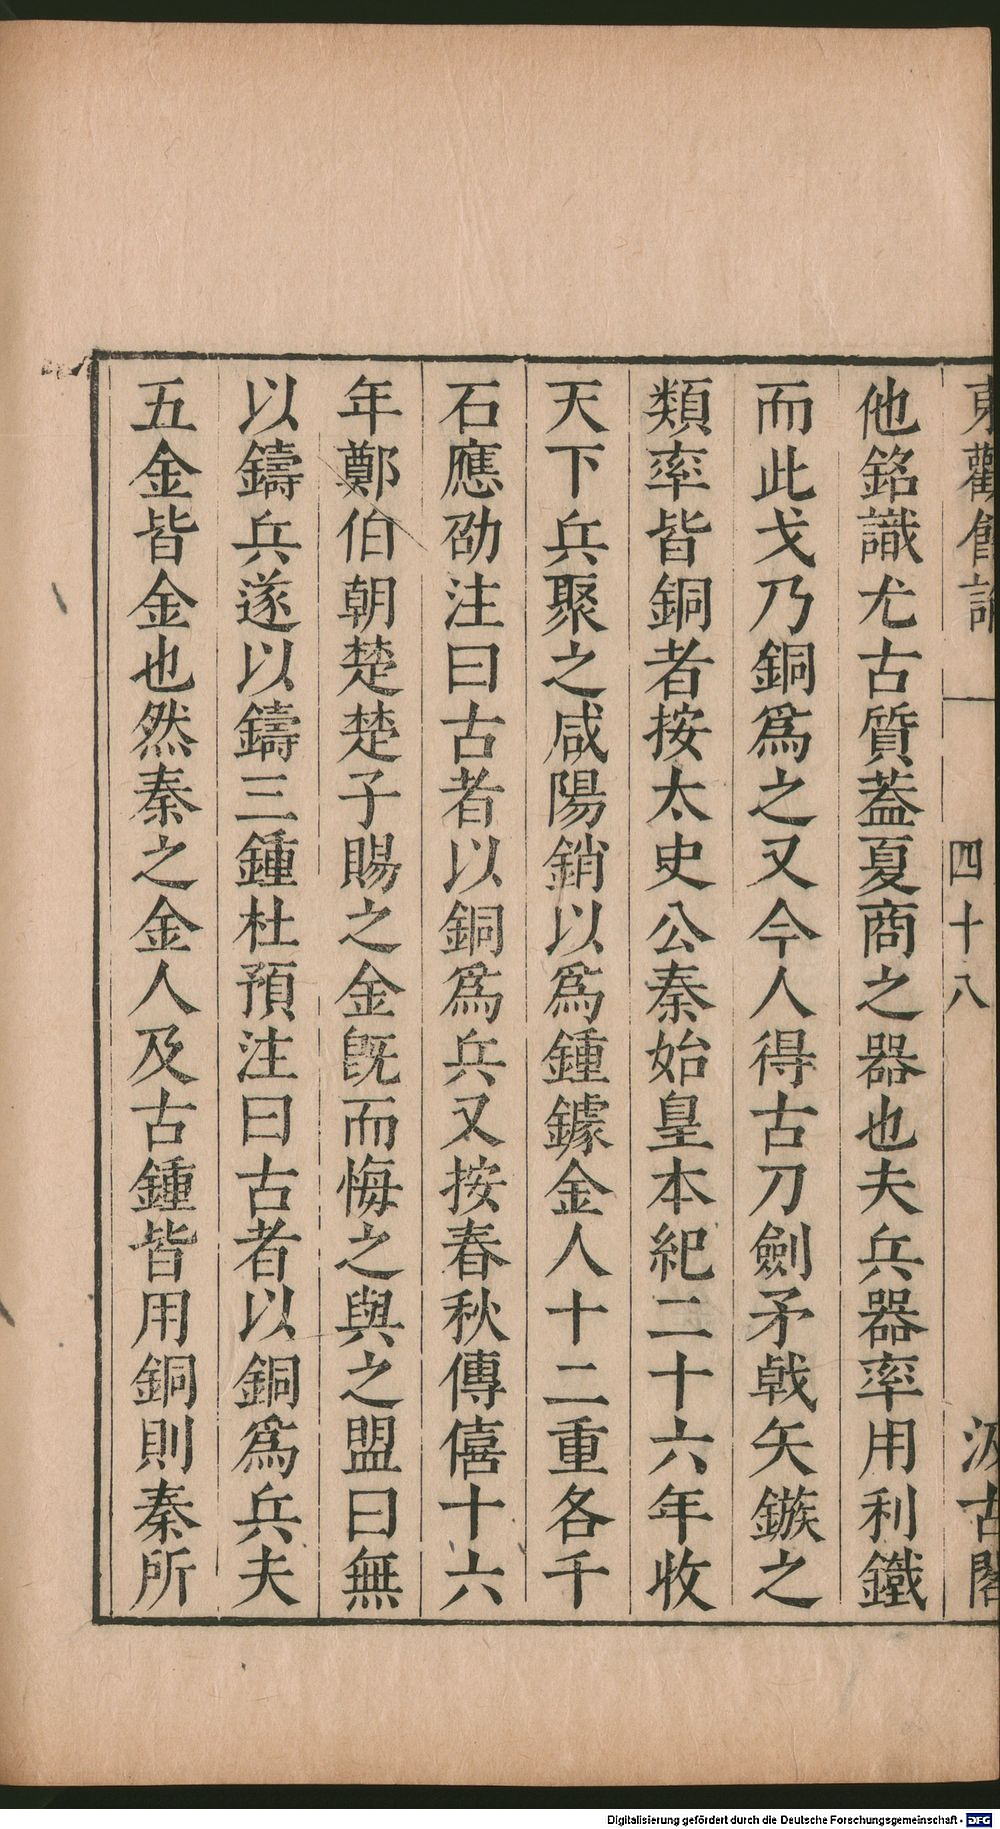 東觀餘論 一 四十八 汲古閣
他銘識尤古質蓋夏商之器也夫兵器率用利鐵
而此戈乃銅爲之又今人得古刀劍矛戟矢鏃之
類率皆銅者按太史公秦始皇本紀二十六年收
天下兵聚之咸陽銷以爲鍾鐻金人十二重各千
石應劭注曰古者以銅爲兵又按春秋傳僖十六
年鄭伯朝楚楚子賜之金旣而悔之與之盟曰無
以鑄兵遂以鑄三鍾杜預注曰古者以銅爲兵夫
五金皆金也然秦之金人及古鍾皆用銅則秦所
Digitalisierung gefördert durch die Deutsche Forschungsgemeinschaft - DFG